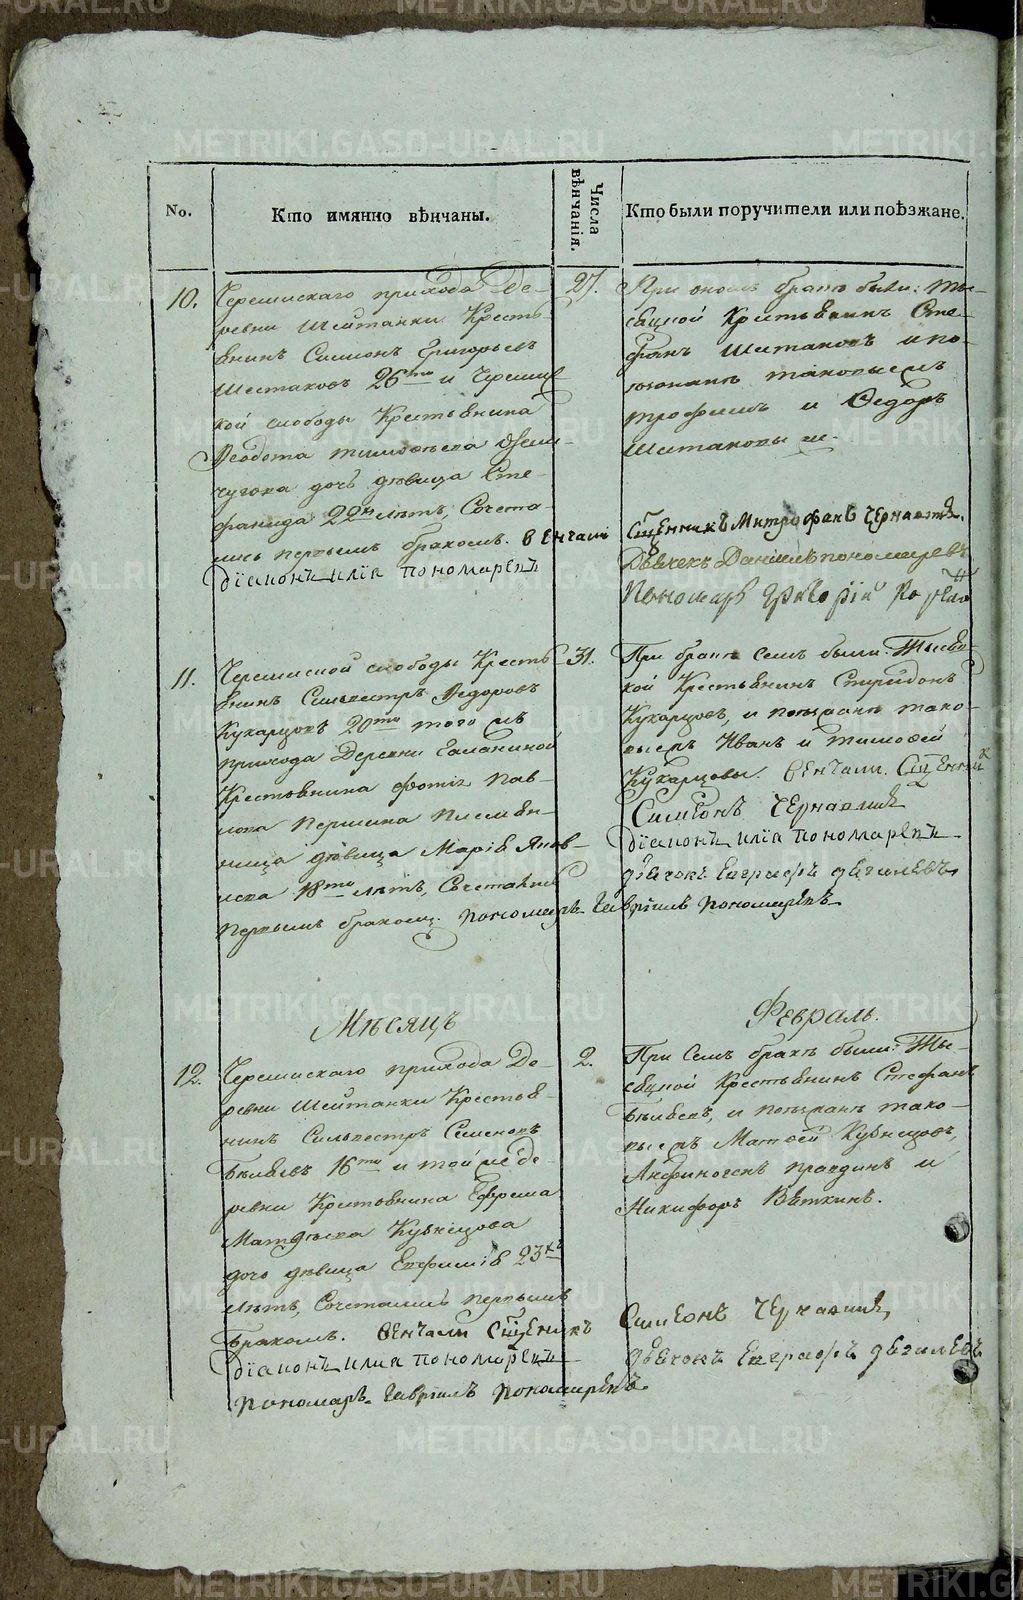 No.
Кто имянно вѣнчаны.
Числа вѣнчанія.
Кто были поручители или поѣзжане.
10. Черемискаго прихода Де-
ревни Шейтанки Кресть-
янинъ Симионъ Григорьевъ
Шестаковъ 26ти и Черемис-
кой слободы Крестьянина
Ѳеодота Тимоѳеева
дочь дѣвица Сте-
фанида 22хъ лѣтъ, Сочета-
лись первымъ бракомъ. венчали
діаконъ илія пономаревъ
27.
При ономъ бракѣ были: Ты-
сяцкой Крестьянинъ Сте-
фанъ Шестаковъ и по-
езжанъ таковыежъ
Трофимъ и Ѳедоръ
Шестаковы же.
Сщенникъ Митрофанъ Чернавинъ.
Дьячекъ Даніилъ пономаревъ
Пономарь Григорій
11. Черемиской слободы Кресть-
янинъ Сильвестръ Ѳедоровъ
Кукарцовъ 20ти тогожъ
прихода Деревни Галаниной
Крестьянина Фотія Пав-
лова Першина племян-
ница дѣвица Марія Яков-
лева 18ти лѣтъ, Сочетались
первымъ бракомъ. пономарь Гавріилъ пономаревъ
31.
При бракѣ семъ были: Тысяц-
кой Крестьянинъ Спиридонъ
Кукарцовъ, и поѣзжанъ тако-
выежъ Иванъ и Тимоѳей
Кукарцовы. венчали. Сщенникъ
Симионъ Чернавинъ
діаконъ илія пономаревъ
дьячокъ Евграфъ дягилевъ
Мѣсяцъ
Февраль.
12. Черемискаго прихода Де-
ревни Шейтанки Крестья-
нинъ Сильвестръ Семеновъ
Бѣляевъ 16ти и той же де-
ревни Крестьянина Ефрема
Матвѣева Кузнецова
дочь дѣвица Евфимія 23хъ
лѣтъ, Сочетались первымъ
бракомъ. венчали Сщенникъ
діаконъ илия пономаревъ
пономарь. Гавріилъ пономаревъ.
2.
При семъ бракѣ были: Ты-
сяцкой Крестьянинъ Стефанъ
Бѣляевъ, и поѣзжанъ тако-
выежъ Матѳей Кузнецовъ,
Анфиногенъ Правдинъ и
Никифоръ Вяткинъ.
Симионъ Чернавинъ,
дьячокъ Евграфъ дягилевъ
METRIKI.GASO-URAL.RU